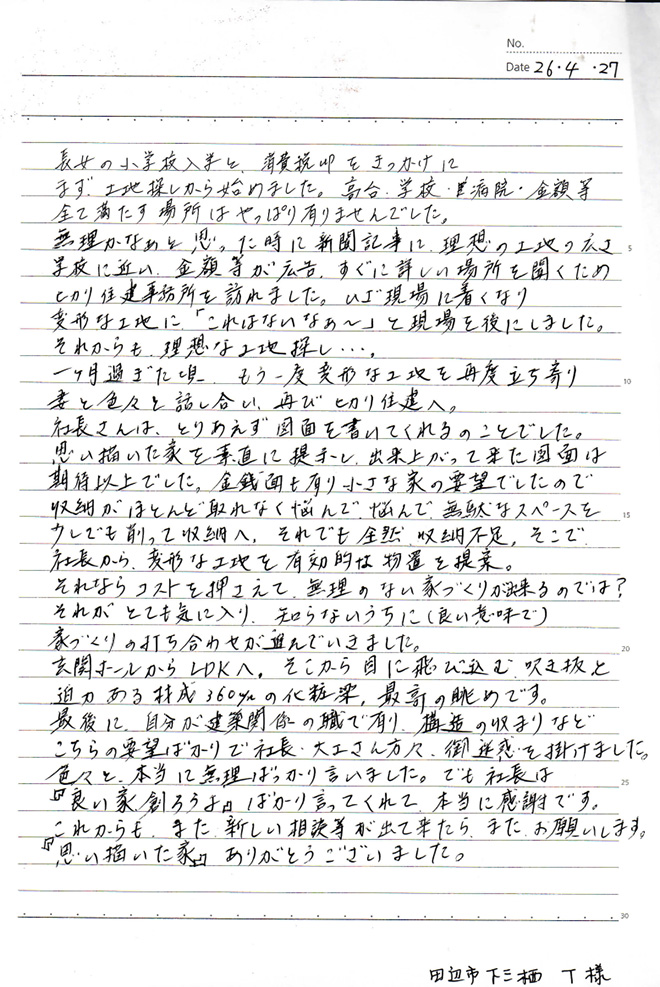 No.
Date 26・4・27
長女の小学校入学と、消費税UPをきっかけに
まず、土地探しから始めました。高台・学校・病院・金額等
全て満たす場所はやっぱり有りませんでした。
無理かなぁと思った時に新聞記事に、理想の土地の広さ
5
学校に近い、金額等が広告、すぐに詳しい場所を聞くため
ヒカリ住建事務所を訪れました。いざ現場に着くなり
変形な土地に、「これはないなぁ〜」と現場を後にしました。
それからも、理想な土地探し・・・。
一ヶ月過ぎた頃、もう一度変形な土地を再度立ち寄り
10
妻と色々と話し合い、再びヒカリ住建へ。
社長さんは、とりあえず図面を書いてくれるのことでした。
思い描いた家を素直に提示し、出来上がって来た図面は
期待以上でした。金銭面も有り小さな家の要望でしたので
収納がほとんど取れなく悩んで、悩んで無駄なスペースを
15
少しでも削って収納へ、それでも全然、収納不足、そこで
社長から、変形な土地を有効的な物置を提案。
それならコストを押さえて、無理のない家づくりが出来るのでは?
それがとても気に入り、知らないうちに(良い意味で)
家づくりの打ち合わせが進んでいきました。
20
玄関ホールからLDKへ、そこから目に飛び込む吹き抜と
迫力ある材成360㎜の化粧梁、最高の眺めです。
最後に、自分が建築関係の職で有り、構造の収まりなど
こちらの要望ばかりで社長・大工さん方々、御迷惑を掛けました。
色々と、本当に無理ばっかり言いました。でも社長は
25
『良い家創ろうよ』ばかり言ってくれて、本当に感謝です。
これからも、また、新しい相談等が出て来たら、また、お願いします。
『思い描いた家』ありがとうございました。
30
田辺市下三栖 T様